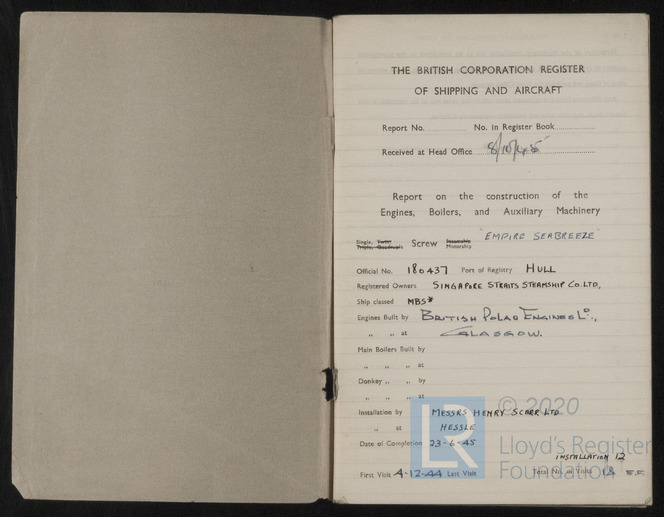 THE BRITISH CORPORATION REGISTER
OF SHIPPING AND AIRCRAFT
Report No. No. in Register Book
Received at Head Office 8/10/45
Report on the construction of the
Engines, Boilers, and Auxiliary Machinery
Single, Twin, Triple, Quadruple Screw Steamship Motorship "EMPIRE SEABREEZE"
Official No. 180437 Port of Registry HULL
Registered Owners SINGAPORE STRAITS STEAMSHIP CO. LTD,
Ship classed MBS*
Engines Built by BRITISH POLAR ENGINES Lo.,
„ „ at GLASGOW.
Main Boilers Built by
„ „ „ at
Donkey „ „ by
„ „ „ at
Installation by MESSRS HENRY SCARR LTD
„ at HESSLE
Date of Completion 23-6-45
INSTALLATION 12
First Visit 4-12-44 Last Visit Total No. of Visits 18 E.F.
LR © 2020
Lloyd's Register
Foundation